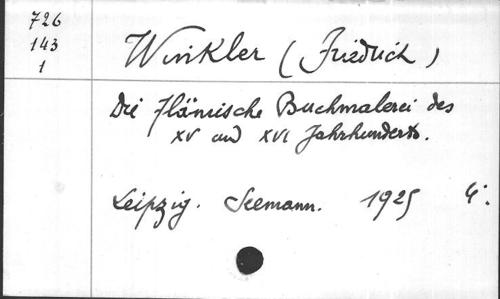 726
143
1
Winkler (Friedrich)
Die flämische Buchmalerei des
XV und XVI Jahrhunderts.
Leipzig. Seemann. 1925 4°.